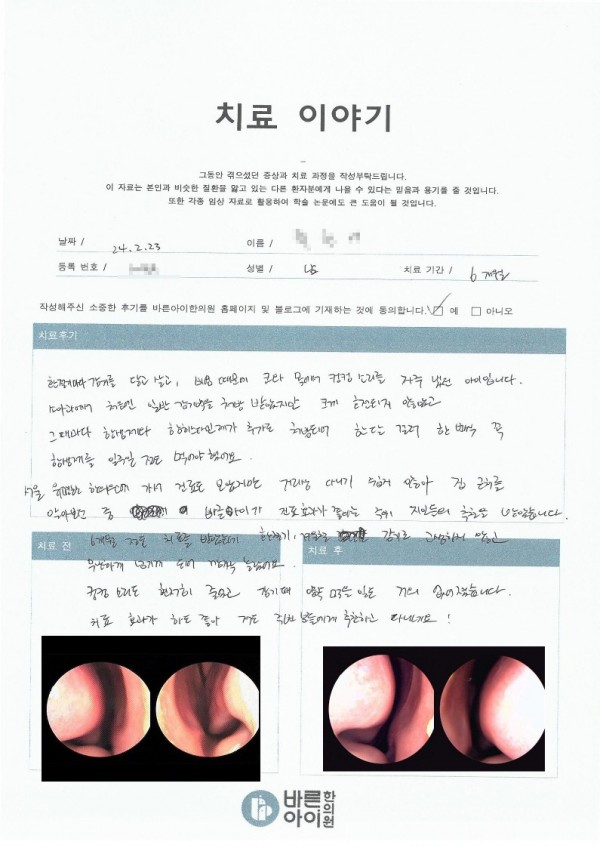 치료 이야기
그동안 겪으셨던 증상과 치료 과정을 작성부탁드립니다.
이 자료는 본인과 비슷한 질환을 앓고 있는 다른 환자분에게 나을 수 있다는 믿음과 용기를 줄 것입니다.
또한 각종 임상 자료로 활용하여 학술 논문에도 큰 도움이 될 것입니다.
날짜 / 24.2.23 이름 /
등록 번호 / 성별 / 남 치료 기간 / 6개월
작성해주신 소중한 후기를 바른아이한의원 홈페이지 및 블로그에 기재하는 것에 동의합니다. 예 아니오
치료후기
환절기마다 감기를 달고 살고, 비염 때문에 코와 목에서 컹컹 소리를 자주 냈던 아이입니다.
소아과에서 처음엔 일반 감기약을 처방 받았지만 크게 호전되지 않았고
그때마다 항생제와 항히스타민제가 추가로 처방되어 한 달 걸러 한 번씩 꼭
항생제를 일주일 정도 먹어야 했어요.
서울 유명한 한의원에 가서 진료도 보았지만 거리상 다니기 쉽지 않아 집 근처를
알아보던 중 바른아이가 진료효과가 좋다는 주위 지인들의 추천을 받았습니다.
6개월 정도 치료를 받았는데 환절기, 겨울을 감기로 고생하지 않고
무난하게 넘기게 되어 깜짝 놀랐어요.
컹컹 소리도 현저히 줄었고 감기때 약 먹을 일도 거의 없어졌습니다.
치료 효과가 하도 좋아 저도 주변 분들에게 추천하고 다녀요!
치료 전
치료 후
바른아이한의원